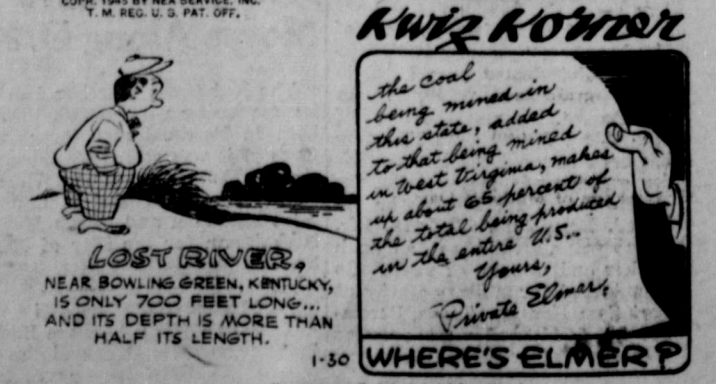 COPR. 1945 BY NEA SERVICE, INC.
T. M. REG. U. S. PAT. OFF.
LOST RIVER,
NEAR BOWLING GREEN, KENTUCKY,
IS ONLY 700 FEET LONG...
AND ITS DEPTH IS MORE THAN
HALF ITS LENGTH.
1-30
Kwiz Korner
the coal
being mined in
this state, added
to that being mined
in West Virginia, makes
up about 65 percent of
the total being produced
in the entire U.S..
Yours,
Private Elmer.
WHERE'S ELMER?